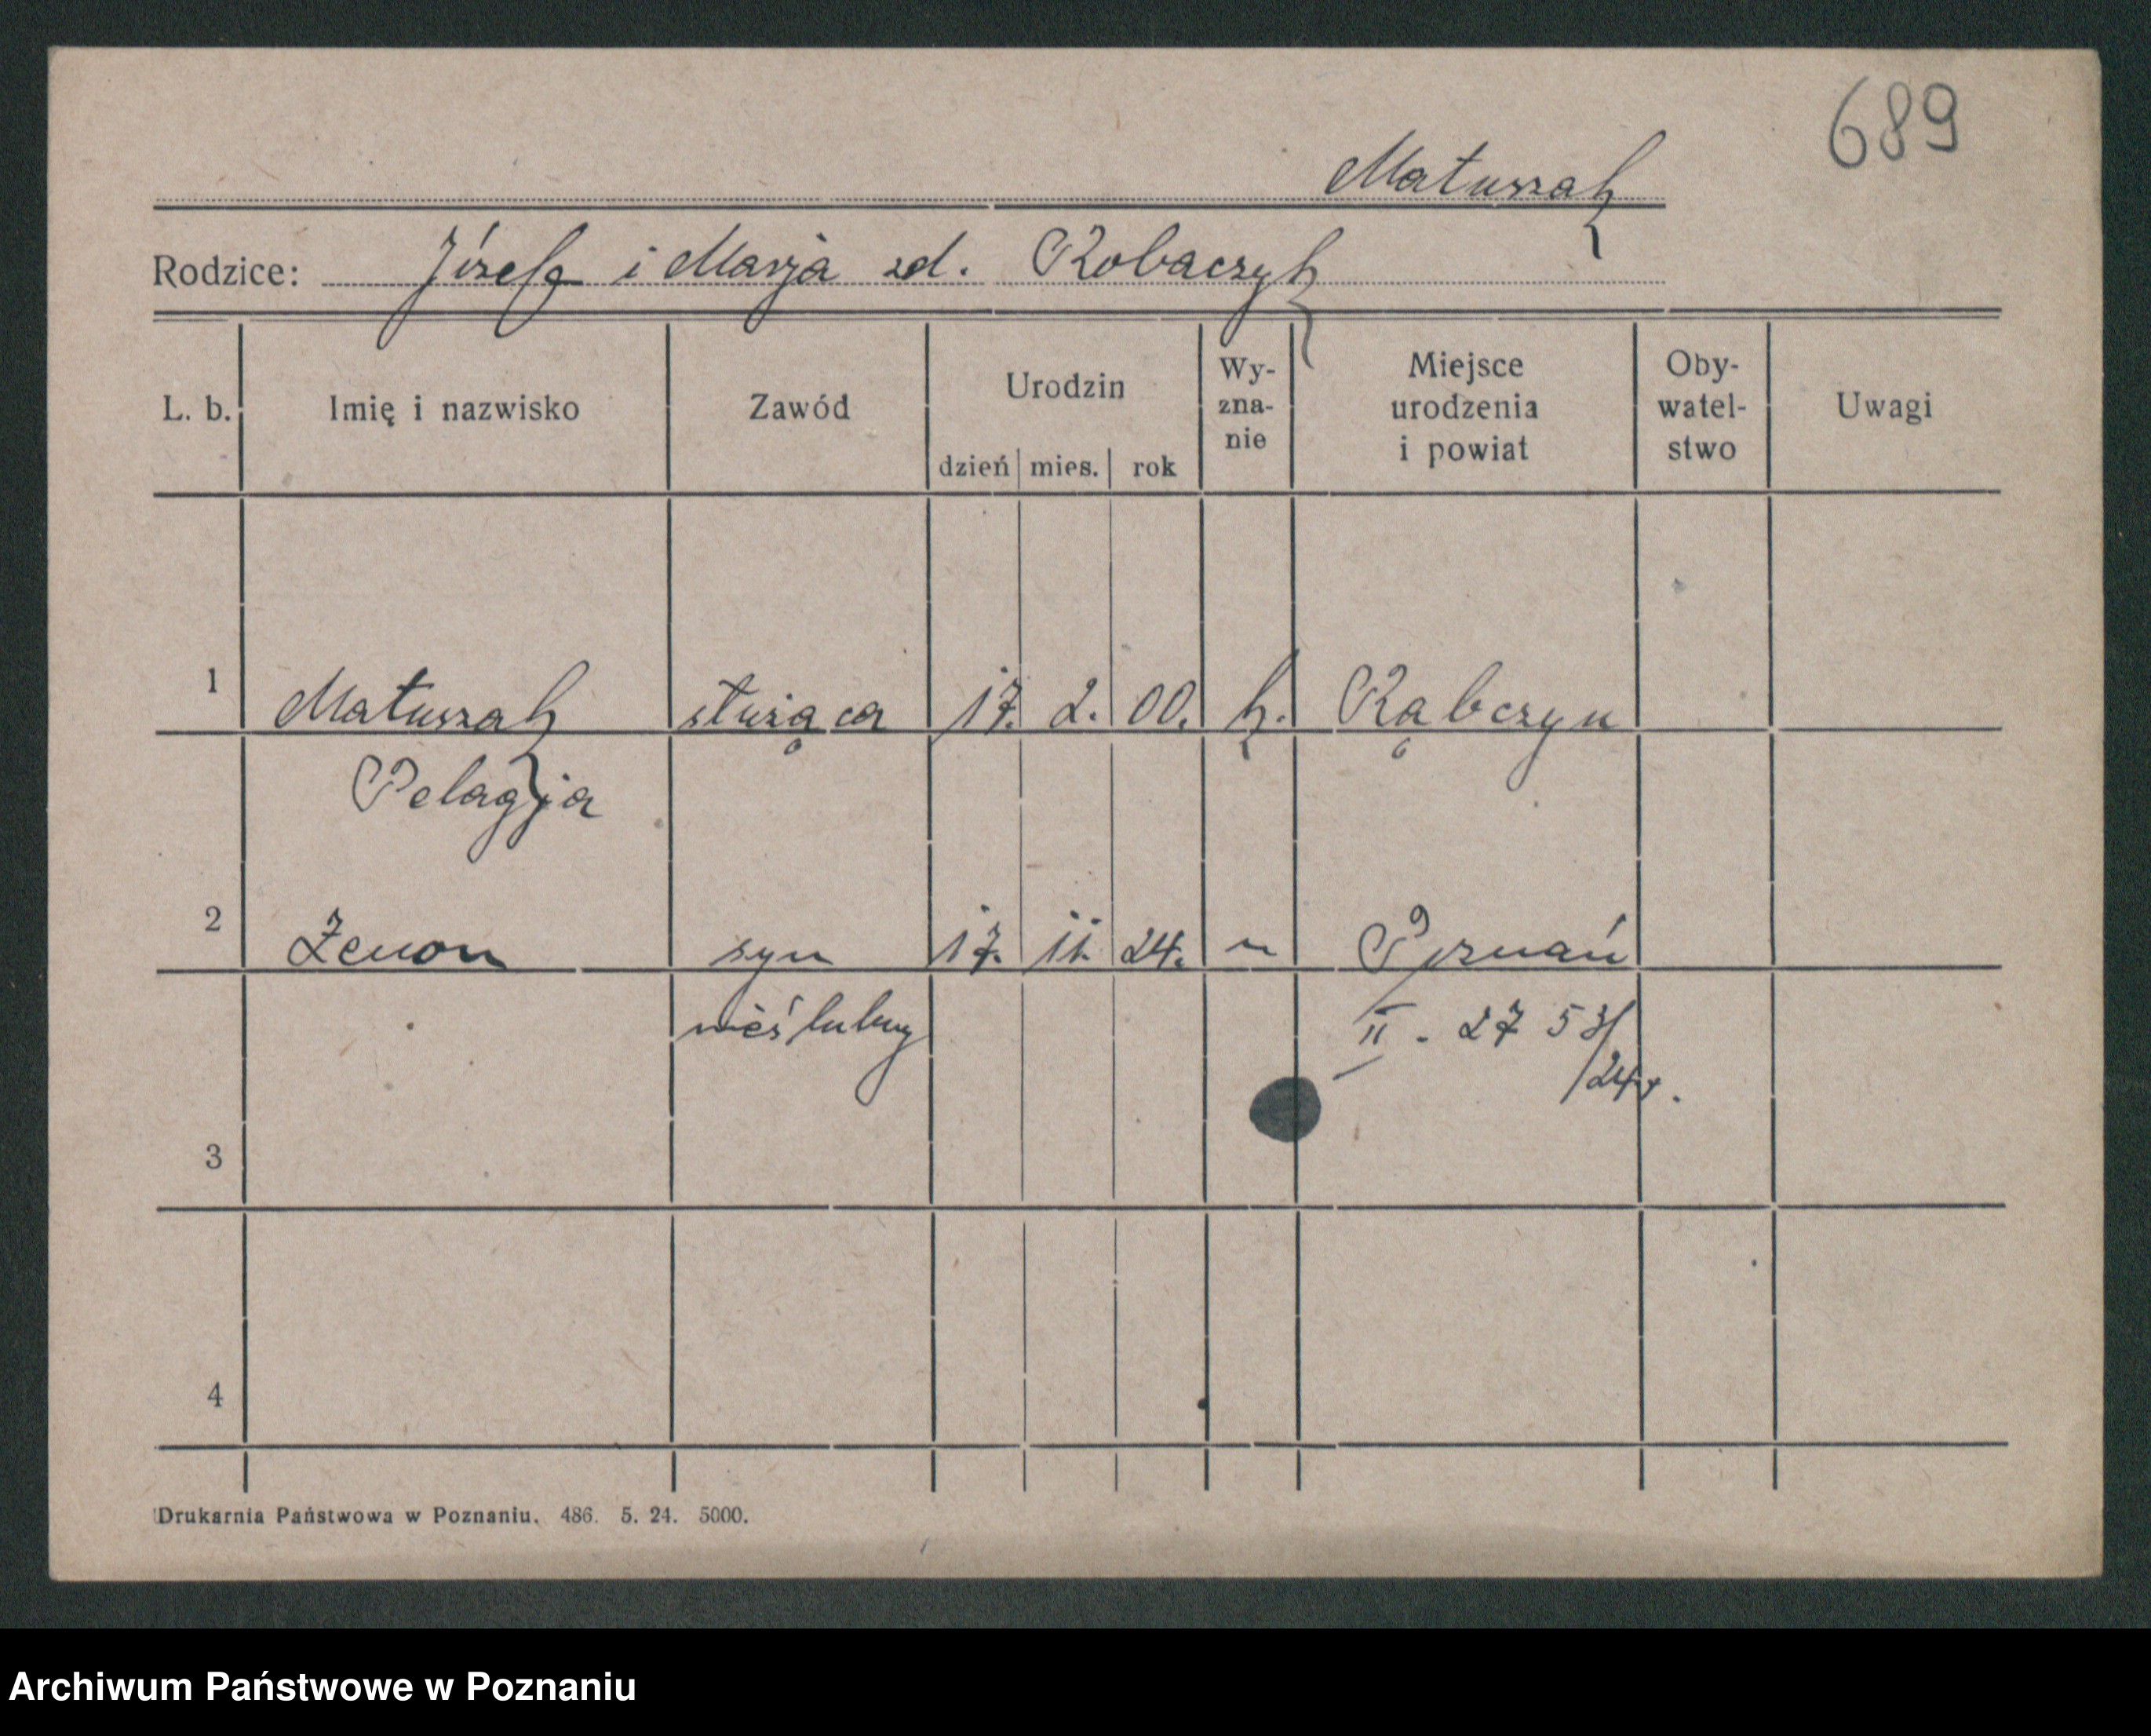 689
Matuszak
Rodzice: Józef i Marja zd. Robaczyk
L. b. Imię i nazwisko Zawód Urodzin dzień mies. rok Wy-zna-nie Miejsce urodzenia i powiat Oby-watel-stwo Uwagi
1 Matuszak służąca 17. 2. 00. k. Rąbczyn
Pelagja
2 Zenon syn 17. 11. 24. " Poznań
nieślubny II. 2753/
/24r.
3
4
Drukarnia Państwowa w Poznaniu. 486. 5. 24. 5000.
Archiwum Państwowe w Poznaniu